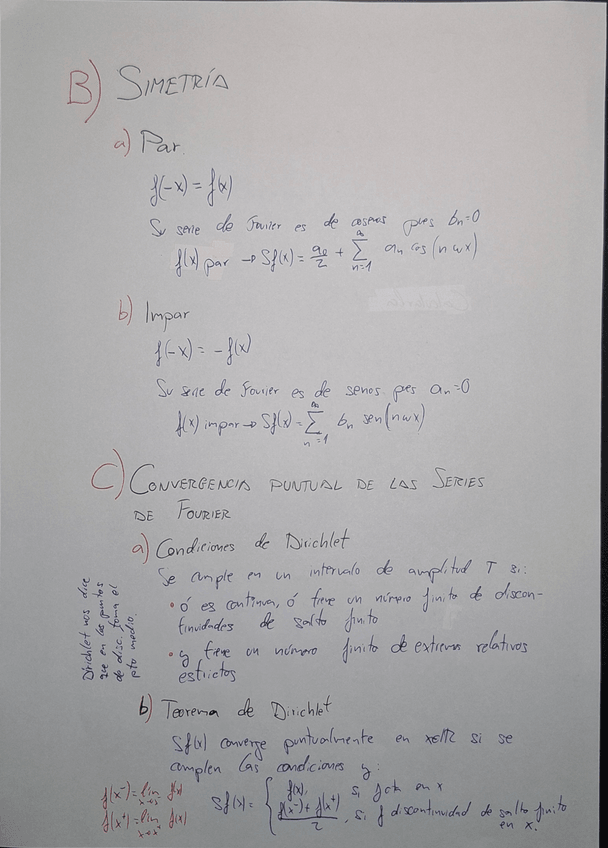 B) SIMETRÍA
a) Par
f(-x) = f(x)
Su serie de Fourier es de cosenos pues bn=0
f(x) par → Sf(x) = a0/2 + ∑_{n=1}^{∞} an cos(nωx)
b) Impar
f(-x) = -f(x)
Su serie de Fourier es de senos pues an=0
f(x) impar → Sf(x) = ∑_{n=1}^{∞} bn sen(nωx)
C) CONVERGENCIA PUNTUAL DE LAS SERIES
DE FOURIER
a) Condiciones de Dirichlet
Se cumple en un intervalo de amplitud T si:
• ó es continua, ó tiene un número finito de discon-
tinuidades de salto finito
• y tiene un número finito de extremos relativos
estrictos
Dirichlet nos dice
que en los puntos
de disc. toma el
pto medio.
b) Teorema de Dirichlet
Sf(x) converge puntualmente en x∈ℝ si se
cumplen las condiciones y:
f(x⁻) = lim_{x→x⁻} f(x)
f(x⁺) = lim_{x→x⁺} f(x)
Sf(x) = { f(x), si f cta en x
(f(x⁻) + f(x⁺))/2, si f discontinuidad de salto finito
en x.